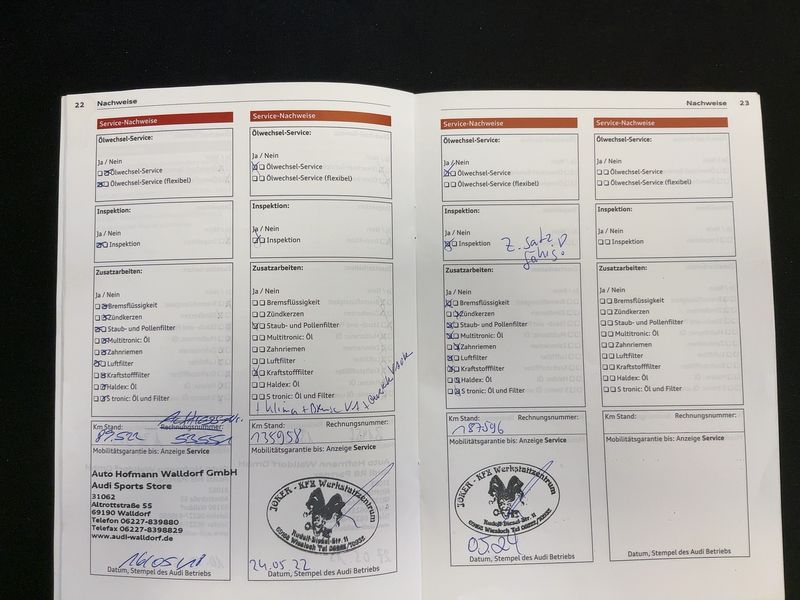 22 Nachweise
Service-Nachweise
Ölwechsel-Service:
Ja / Nein
Ölwechsel-Service
Ölwechsel-Service (flexibel)
Inspektion:
Ja / Nein
Inspektion
Zusatzarbeiten:
Ja / Nein
Bremsflüssigkeit
Zündkerzen
Staub- und Pollenfilter
Multitronic: Öl
Zahnriemen
Luftfilter
Kraftstofffilter
Haldex: Öl
S tronic: Öl und Filter
Km Stand: Rechnungsnummer:
89.522 53551
Mobilitätsgarantie bis: Anzeige Service
Auto Hofmann Walldorf GmbH
Audi Sports Store
31062
Altrottstraße 55
69190 Walldorf
Telefon 06227-839880
Telefax 06227-8398829
www.audi-walldorf.de
16.05.18
Datum, Stempel des Audi Betriebs
Service-Nachweise
Ölwechsel-Service:
Ja / Nein
Ölwechsel-Service
Ölwechsel-Service (flexibel)
Inspektion:
Ja / Nein
Inspektion
Zusatzarbeiten:
Ja / Nein
Bremsflüssigkeit
Zündkerzen
Staub- und Pollenfilter
Multitronic: Öl
Zahnriemen
Luftfilter
Kraftstofffilter
Haldex: Öl
S tronic: Öl und Filter
+ Klima +
Km Stand: Rechnungsnummer:
135958
Mobilitätsgarantie bis: Anzeige Service
JOKER - KFZ Werkstattzentrum
Rudolf-Diesel-Str. 11
Wiesloch Tel
24.05 22
Datum, Stempel des Audi Betriebs
Nachweise 23
Service-Nachweise
Ölwechsel-Service:
Ja / Nein
Ölwechsel-Service
Ölwechsel-Service (flexibel)
Inspektion:
Ja / Nein
Inspektion
Zusatzarbeiten:
Ja / Nein
Bremsflüssigkeit
Zündkerzen
Staub- und Pollenfilter
Multitronic: Öl
Zahnriemen
Luftfilter
Kraftstofffilter
Haldex: Öl
S tronic: Öl und Filter
Km Stand: Rechnungsnummer:
187596
Mobilitätsgarantie bis: Anzeige Service
JOKER - KFZ Werkstattzentrum
Rudolf-Diesel-Str. 11
Wiesloch Tel
05.24
Datum, Stempel des Audi Betriebs
Service-Nachweise
Ölwechsel-Service:
Ja / Nein
Ölwechsel-Service
Ölwechsel-Service (flexibel)
Inspektion:
Ja / Nein
Inspektion
Zusatzarbeiten:
Ja / Nein
Bremsflüssigkeit
Zündkerzen
Staub- und Pollenfilter
Multitronic: Öl
Zahnriemen
Luftfilter
Kraftstofffilter
Haldex: Öl
S tronic: Öl und Filter
Km Stand: Rechnungsnummer:
Mobilitätsgarantie bis: Anzeige Service
Datum, Stempel des Audi Betriebs